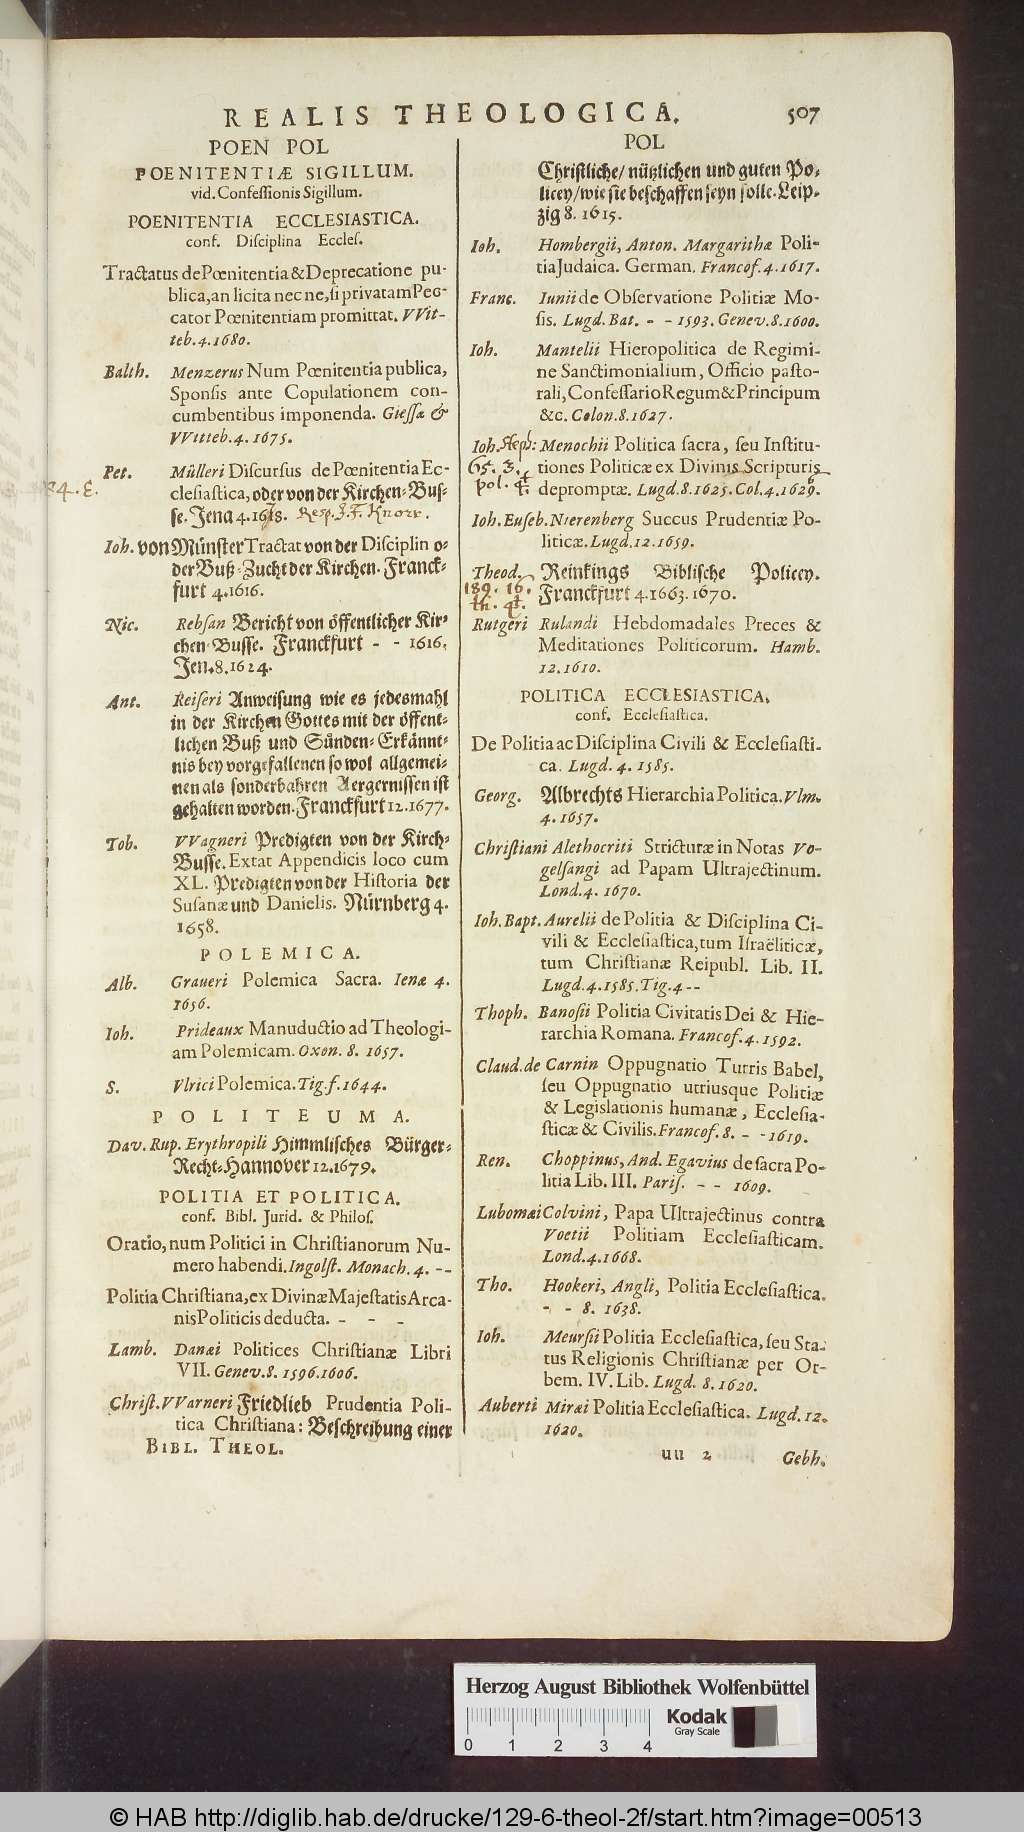 REALIS THEOLOGICA. 507
POEN POL
POENITENTIÆ SIGILLUM.
vid. Confeſſionis Sigillum.
POENITENTIA ECCLESIASTICA.
conf. Diſciplina Eccleſ.
Tractatus de Pœnitentia & Deprecatione pu-
blica, an licita nec ne, ſi privatam Pec-
cator Pœnitentiam promittat. VVit-
teb. 4. 1680.
Balth. Menzerus Num Pœnitentia publica,
Sponſis ante Copulationem con-
cumbentibus imponenda. Gieſſæ &
VVitteb. 4. 1675.
Pet. Mülleri Diſcurſus de Pœnitentia Ec-
cleſiaſtica, oder von der Kirchen-Buſ-
ſe. Jena 4. 1678. Resp. J. F. Knorr.
Ioh. von Münſter Tractat von der Diſciplin o-
der Buß-Zucht der Kirchen. Franck-
furt 4. 1616.
Nic. Rebſan Bericht von öffentlicher Kir-
chen-Buſſe. Franckfurt - - 1616.
Jen. 8. 1624.
Ant. Reiſeri Anweiſung wie es jedesmahl
in der Kirchen Gottes mit der öffent-
lichen Buß und Sünden-Erkännt-
nis bey vorgefallenen ſo wol allgemei-
nen als ſonderbahren Aergernissen iſt
gehalten worden. Franckfurt 12. 1677.
Tob. VVagneri Predigten von der Kirch-
Buſſe. Extat Appendicis loco cum
XL. Predigten von der Hiſtoria der
Suſanæ und Danielis. Nürnberg 4.
1658.
POLEMICA.
Alb. Graueri Polemica Sacra. Ienæ 4.
1656.
Ioh. Prideaux Manuductio ad Theologi-
am Polemicam. Oxon. 8. 1657.
S. Vlrici Polemica. Tig. f. 1644.
POLITEUMA.
Dav. Rup. Erythropili Himmliſches Bürger-
Recht-Hannover 12. 1679.
POLITIA ET POLITICA.
conf. Bibl. Jurid. & Philoſ.
Oratio, num Politici in Chriſtianorum Nu-
mero habendi. Ingolſt. Monach. 4. --
Politia Chriſtiana, ex Divinæ Majeſtatis Arca-
nis Politicis deducta. - - -
Lamb. Danæi Politices Chriſtianæ Libri
VII. Genev. 8. 1596. 1606.
Chriſt. VVarneri Friedlieb Prudentia Poli-
tica Chriſtiana: Beſchreibung einer
BIBL. THEOL.
POL
Chriſtliche/ nützlichen und guten Po-
licey/ wie ſie beſchaffen ſeyn ſolle. Leip-
zig 8. 1615.
Ioh. Hombergii, Anton. Margarithæ Poli-
tia Judaica. German. Francof. 4. 1617.
Franc. Iunii de Obſervatione Politiæ Mo-
ſis. Lugd. Bat. - - 1593. Genev. 8. 1600.
Ioh. Mantelii Hieropolitica de Regimi-
ne Sanctimonialium, Officio paſto-
rali, Confeſſario Regum & Principum
&c. Colon. 8. 1627.
Ioh. Steph: Menochii Politica ſacra, ſeu Inſtitu-
65. 3. tiones Politicæ ex Divinis Scripturis
pol. 4. depromptæ. Lugd. 8. 1625. Col. 4. 1626.
Ioh. Euſeb. Nierenberg Succus Prudentiæ Po-
liticæ. Lugd. 12. 1659.
Theod. Reinkings Bibliſche Policey.
189. 16. Franckfurt 4. 1663. 1670.
th. 4.
Rutgeri Rulandi Hebdomadales Preces &
Meditationes Politicorum. Hamb.
12. 1610.
POLITICA ECCLESIASTICA,
conf. Eccleſiaſtica.
De Politia ac Diſciplina Civili & Eccleſiaſti-
ca. Lugd. 4. 1585.
Georg. Albrechts Hierarchia Politica. Vlm.
4. 1657.
Chriſtiani Alethocriti Stricturæ in Notas Vo-
gelſangi ad Papam Ultrajectinum.
Lond. 4. 1670.
Ioh. Bapt. Aurelii de Politia & Diſciplina Ci-
vili & Eccleſiaſtica, tum Iſraëliticæ,
tum Chriſtianæ Reipubl. Lib. II.
Lugd. 4. 1585. Tig. 4 --
Thoph. Banoſii Politia Civitatis Dei & Hie-
rarchia Romana. Francof. 4. 1592.
Claud. de Carnin Oppugnatio Turris Babel,
ſeu Oppugnatio utriusque Politiæ
& Legislationis humanæ, Eccleſia-
ſticæ & Civilis. Francof. 8. - - 1619.
Ren. Choppinus, And. Egavius de ſacra Po-
litia Lib. III. Pariſ. - - 1609.
Lubomæi Colvini, Papa Ultrajectinus contra
Voetii Politiam Eccleſiaſticam.
Lond. 4. 1668.
Tho. Hookeri, Angli, Politia Eccleſiaſtica.
- - 8. 1638.
Ioh. Meurſii Politia Eccleſiaſtica, ſeu Sta-
tus Religionis Chriſtianæ per Or-
bem. IV. Lib. Lugd. 8. 1620.
Auberti Miræi Politia Eccleſiaſtica. Lugd. 12.
1620.
uu 2 Gebh.
Herzog August Bibliothek Wolfenbüttel
Kodak
Gray Scale
0 1 2 3 4
© HAB http://diglib.hab.de/drucke/129-6-theol-2f/start.htm?image=00513